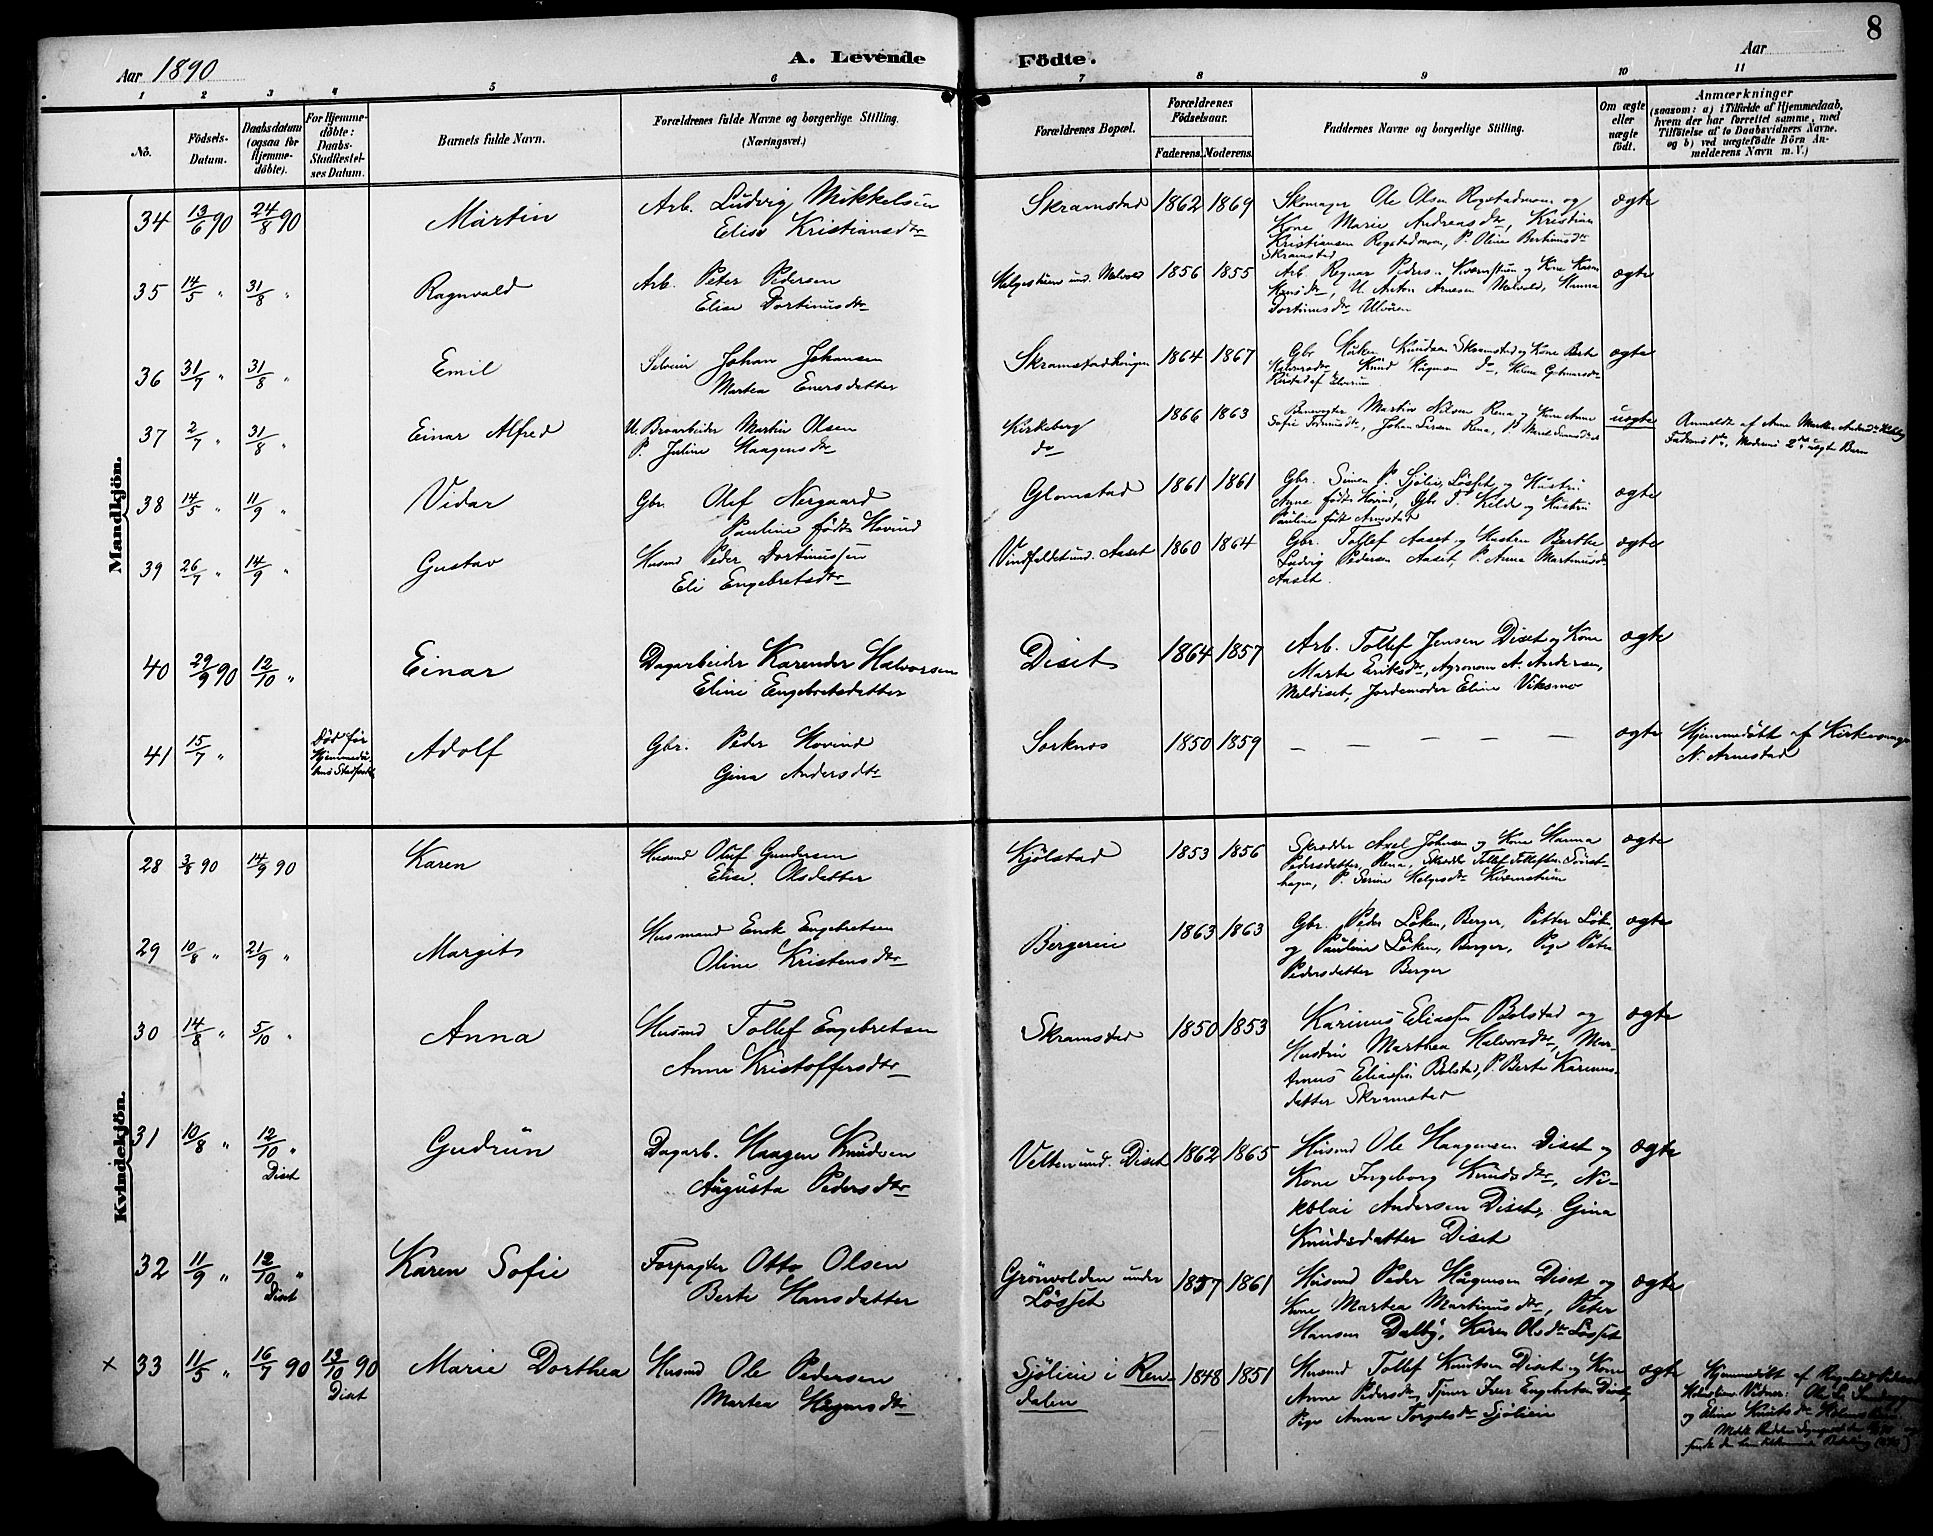 8
Aar 1890
A. Levende
Födte.
Aar
1 2 3 4 5 6 7 8 9 10 11
No.
Födsels-Datum.
Daabsdatum (ogsaa for Hjemmedöbte).
For Hjemmedöbte: Daabs-Stadfæstelses Datum.
Barnets fulde Navn.
Forældrenes fulde Navne og borgerlige Stilling.
(Næringsvei.)
Forældrenes Bopæl.
Forældrenes Födselsaar.
Faderens. Moderens.
Faddernes Navne og borgerlige Stilling.
Om ægte eller uægte födt.
Anmærkninger
(saasom: a) i Tilfælde af Hjemmedaab, hvem der har forrettet samme, med Tilföielse af to Daabsvidners Navne. og b) ved uægtefödte Börn Anmelderens Navn m. V.)
Mandkjön.
34 13/6 90 24/8 90 Martin Arb. Ludvig Mikkelsen
Elise Kristiansdtr
Skramstad 1862 1869 Skomager Ole Olsen Rogstadmoen og
Kone Marie Andreasdtr, Kristian
Kristiansen Rogstadmoen, P. Oline Bertinusdtr
Skramstad
ægte
35 14/5 " 31/8 " Ragnvald Arb. Peter Pedersen
Elise Dortinusdtr
und. Melvold 1856 1855 Arb.
U. Anton Arnesen Melvold, Hanna
Dortinusdtr Ulvåen
ægte
36 31/7 " 31/8 " Emil Selveier Johan Johansen
Martea Enersdatter
1864 1867 Gbr. Knudsen Skramstad og Kone Berte
Halvorsdtr, Knud Hågensen do,
af Elverum
ægte
37 2/7 " 31/8 " Einar Alfred U. Broarbeider Martin Olsen
P. Juline Haagensdtr
Kirkeberg
do
1866 1863 Martin Nilsen Rena og Kone Anne
Sofie Johan Larsen Rena, P.
uægte Anmeldt af Anne
Faderens 1ste, Moderens 2det uægte Barn
38 14/5 " 11/9 " Vidar Gbr. Olaf Nergaard
Pauline födt Hovind
Glomstad 1861 1861 Gbr. Simen P. Sjölie, Lösset og Hustru
Agne födt Hovind, Gbr. T. Kilde og Hustru
Pauline födt Arnestad
ægte
39 26/7 " 14/9 " Gustav Husmd Peder Dortinussen
Eli Engebretsdtr
Vindfaldet und. Aaset 1860 1864 Gbr. Tollef Aaset og Hustru Berthe
Ludvig Pedersen Aaset, P. Anna Martinusdtr
Aaset.
ægte
40 29/9 90 12/10 " Einar Dagarbeider Karender Halvorsen
Eline Engebretsdatter
Diset 1864 1857 Arb. Tollef Jensen Diset og Kone
Marte Eriksdtr, Agronom A. Andersen,
Meldiset, Jordemoder Eline Viksmo
ægte
41 15/7 " Död för
Hjemmedåbens Stadfæst.
Adolf Gbr. Peder Hovind
Gina Andersdtr
Sorknes 1850 1859 — — — — — ægte Hjemmedöbt af Kirkesanger
N. Arnestad
Kvindekjön.
28 3/8 90 14/9 90 Karen Husmd Oluf Gundersen
Elise Olsdatter
Kjölstad 1853 1856 Skrædder Axel Johnsen og Kone Hanna
Pedersdatter, Rena, Skrædder Tollef Tollefsen
P. Serine Helgesdtr Kværnstuen
ægte
29 10/8 " 21/9 " Margit Husmand Enok Engebretsen
Oline Kristensdtr
Bergereie 1863 1863 Gbr. Peder Löken, Berger, Petter Löken
og Pauline Löken, Berger, Pige Petra
Pedersdatter Berger
ægte
30 14/8 " 5/10 " Anna Husmd Tollef Engebretsen
Anne Kristoffersdtr
Skramstad 1850 1853 Karinus Eliassen Bolstad og
Hustru Marthea Halvorsdtr, Mar-
tinus Eliassen Bolstad, P. Berte Karinus-
datter Skramstad
ægte
31 10/8 " 12/10 "
Diset
Gudrun Dagarb. Haagen Knudsen
Augusta Pedersdtr
Velten und. Diset 1862 1865 Husmd Ole Haagensen Diset og
Kone Ingeborg Knudsdtr, Ni-
kolai Andersen Diset, Gina
Knudsdatter Diset
ægte
32 11/9 " 12/10 "
Diset
Karen Sofie Forpagter Otto Olsen
Berte Hansdatter
Grönvolden under
Lösset
1857 1861 Husmd Peder Hågensen Diset og
Kone Martea Martinusdtr, Peter
Hansen Dalby, Karen Olsdtr Lösset
ægte
x 33 11/5 " 16/7 90 13/10 90
Diset
Marie Dorthea Husmd Ole Pedersen
Martea Hågensdtr
Sjölieie i Ren-
dalen
1848 1851 Husmd Tollef Knutsen Diset og Kone
Anne Pedersdtr, Tjener Iver Engebretsen Diset,
Pige Anna Torgalsdtr Sjölieie
ægte Hjemmedöbt af
Vidner:
og Eline Knutsdtr